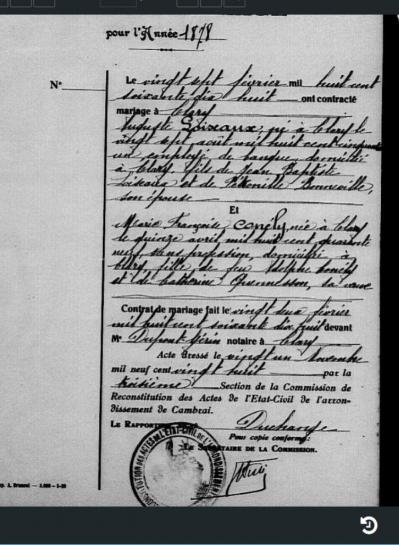 pour l'Année 1878
N°
Le vingt sept février mil huit cent
soixante dix huit ont contracté
mariage à Clary
Auguste Loiseaux, né à Clary le
vingt sept août mil huit cent cinquante
un employé de banque, domicilié
à Clary, fils de Jean Baptiste
Loiseaux et de Pétronille Bonneville,
son épouse
Et
Marie Françoise Conély, née à Clary
le quinze avril mil huit cent quarante
neuf, sans profession, domiciliée à
Clary fille de feu Adolphe Conély
et de Catherine, sa veuve
Contrat de mariage fait le vingt deux février
mil huit cent soixante dix huit devant
Me Dupont notaire à Clary
Acte dressé le vingt un Novembre
mil neuf cent vingt huit par la
troisième Section de la Commission de
Reconstitution des Actes de l'Etat-Civil de l'arron-
dissement de Cambrai.
Le Rapporteur Duchange
Pour copie conforme:
Le Secrétaire de la Commission.